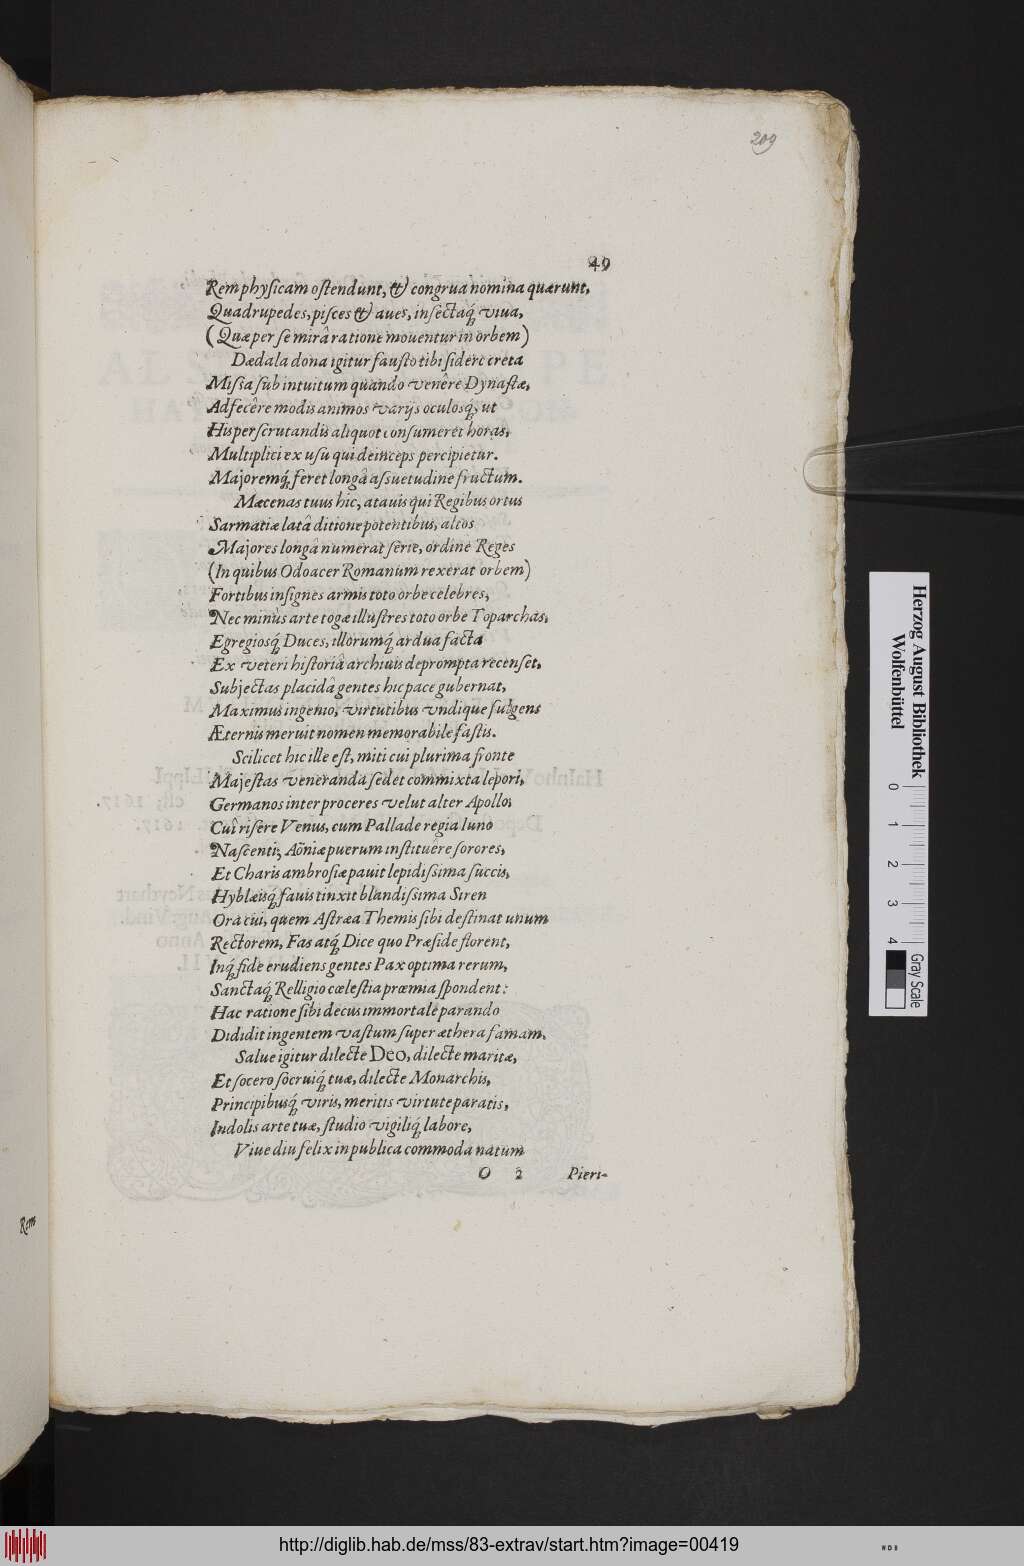 209
49
Rem physicam ostendunt, & congrua nomina quærunt,
Quadrupedes, pisces & aues, insectaq́ viua,
(Quæ per se mirâ ratione mouentur in orbem)
Dædala dona igitur fausto tibi sidere creta
Missa sub intuitum quando venêre Dynastæ,
Adfecêre modis animos varijs oculosq́, ut
His perscrutandis aliquot consumeret horas,
Multiplici ex usu qui deinceps percipietur.
Majoremq́ feret longâ assuetudine fructum.
Mæcenas tuus hic, atauis qui Regibus ortus
Sarmatiæ latâ ditione potentibus, altos
Majores longâ numerat serie, ordine Reges
(In quibus Odoacer Romanum rexerat orbem)
Fortibus insignes armis toto orbe celebres,
Nec minùs arte togæ illustres toto orbe Toparchas,
Egregiosq́ Duces, illorumq́ ardua facta
Ex veteri historiâ archiuis deprompta recenset,
Subjectas placidâ gentes hic pace gubernat,
Maximus ingenio, virtutibus vndique fulgens
Æternis meruit nomen memorabile fastis.
Scilicet hic ille est, miti cui plurima fronte
Majestas veneranda sedet commixta lepori,
Germanos inter proceres velut alter Apollo;
Cui risere Venus, cum Pallade regia Iuno
Nascenti; Aõniæ puerum instituêre sorores,
Et Charis ambrosiæ pauit lepidissima succis,
Hyblæisq́ fauis tinxit blandissima Siren
Ora cui, quem Astræa Themis sibi destinat unum
Rectorem, Fas atq́ Dice quo Præside florent,
Inq́ fide erudiens gentes Pax optima rerum,
Sanctaq́ Relligio cœlestia præmia spondent:
Hac ratione sibi decus immortale parando
Dididit ingentem vastum super æthera famam.
Salue igitur dilecte Deo, dilecte maritæ,
Et socero socruiq́ tuæ, dilecte Monarchis,
Principibusq́ viris, meritis virtute paratis,
Indolis arte tuæ, studio vigiliq́ labore,
Viue diu felix in publica commoda natum
O 2 Pieri-
Rem
Herzog August Bibliothek
Wolfenbüttel
0 1 2 3 4
Gray Scale
http://diglib.hab.de/mss/83-extrav/start.htm?image=00419
WDB